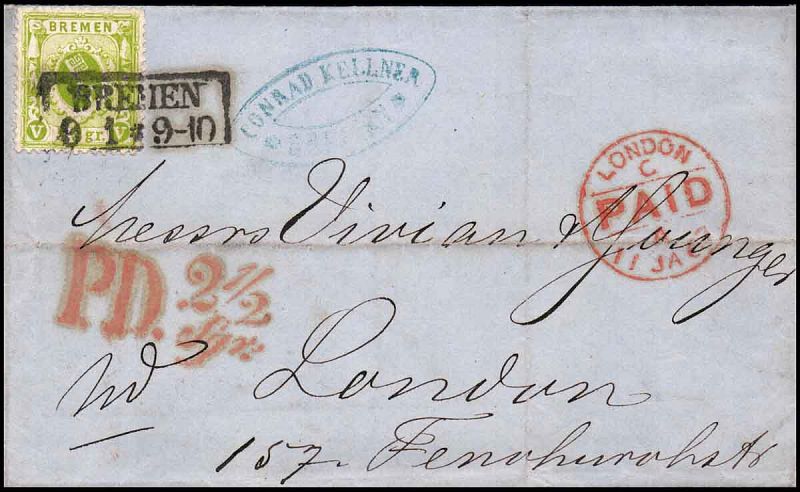 BREMEN
V gr. V
BREMEN
9 1 * 9-10
CONRAD KELLNER
BREMEN
LONDON
C
PAID
11 JA
Messrs Vivian & Younger
PD. 2 1/2
sgr.
London
157. Fenchurchstr